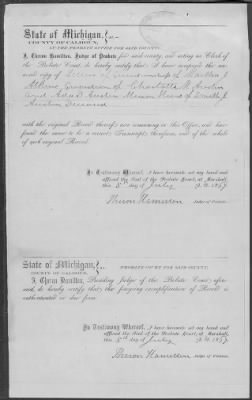 State of Michigan, } ss.
COUNTY OF CALHOUN,
AT THE PROBATE OFFICE FOR SAID COUNTY.
I, Theron Hamilton, Judge of Probate for said county, and acting as Clerk of
the Probate Court, do hereby certify that I have compared the annexed
copy of Letters of Guardianship of Martha J
Guardian of Charlotte
and Minor of
Deceased
with the original Record thereof now remaining in this Office, and have
found the same to be a correct Transcript therefrom, and of the whole
of such original Record.
In Testimony Whereof, I have hereunto set my hand and
affixed the Seal of the Probate Court, at Marshall,
this 5th day of July A. D. 1867
Theron Hamilton
Judge of Probate.
State of Michigan, } ss.
COUNTY OF CALHOUN,
PROBATE COURT FOR SAID COUNTY.
I, Theron Hamilton, Presiding Judge of the Probate Court aforesaid,
do hereby certify that the foregoing exemplification of Record is
authenticated in due form.
In Testimony Whereof, I have hereunto set my hand and
affixed the Seal of the Probate Court, at Marshall,
this 5th day of July A. D. 1867
Theron Hamilton
Judge of Probate.